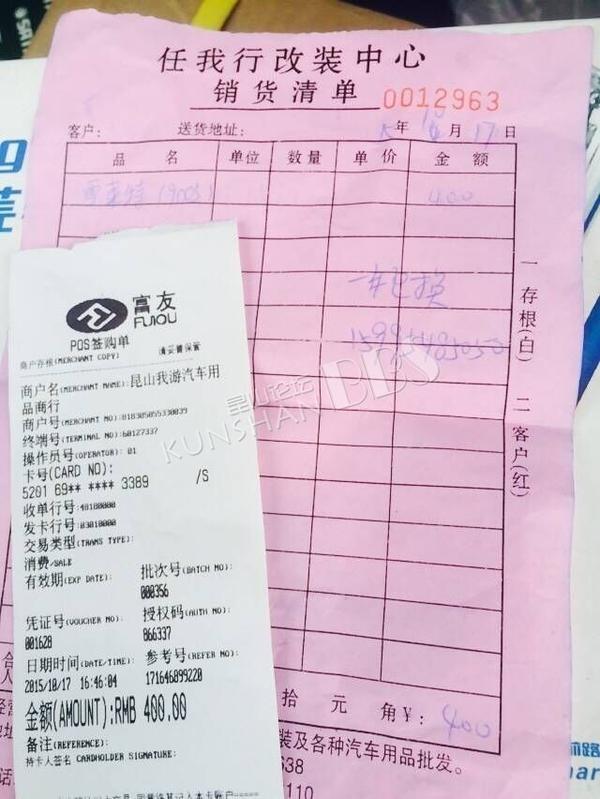 任我行改装中心
销货清单 0012963
客户： 送货地址： 年 月 17 日
品名 单位 数量 单价 金额
400
一存根(白) 二客户(红)
富友
FUIOU
POS签购单
商户存根(MERCHANT COPY) 请妥善保管
商户名(MERCHANT NAME):昆山我游汽车用
品商行
商户号(MERCHANT NO):818305055330039
终端号(TERMINAL NO):60127337
操作员号(OPERATOR): 01
卡号(CARD NO):
5201 69** **** 3389 /S
收单行号:48180000
发卡行号:03010000
交易类型(TRANS TYPE):
消费/SALE
有效期(EXP DATE): 批次号(BATCH NO):
000356
凭证号(VOUCHER NO): 授权码(AUTH NO):
001628 066337
日期时间(DATE/TIME): 参考号(REFER NO):
2015/10/17 16:46:04 171646099220
金额(AMOUNT):RMB 400.00
备注(REFERENCE):
持卡人签名 CARDHOLDER SIGNATURE:
拾 元 角 ¥: 400
装及各种汽车用品批发。
638
110
昆山论坛
KUNSHAN BBS